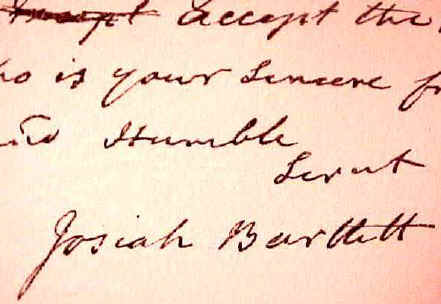 accept the
is your Sincere
Humble
Servt
Josiah Bartlett